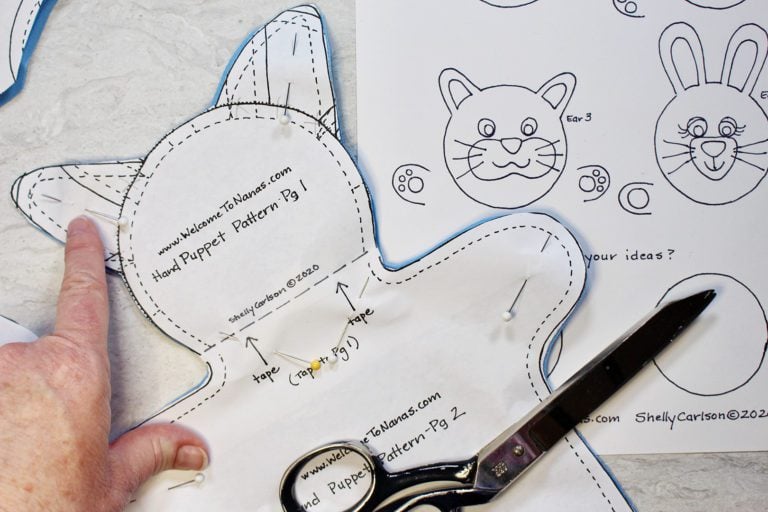 www.WelcomeToNanas.com
Hand Puppet Pattern-Pg 1
ShellyCarlson©2020
tape
tape
Pg 1)
www.WelcomeToNanas.com
Puppet Pattern-Pg 2
Ear 3
your ideas?
.com ShellyCarlson©202